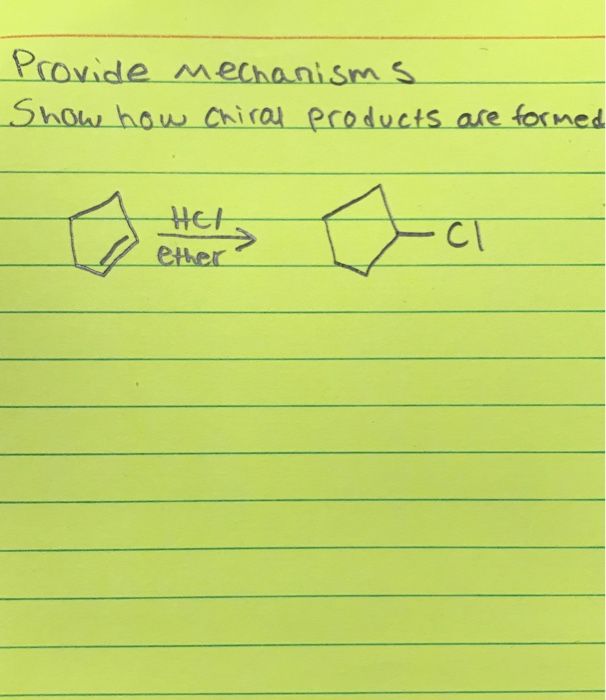 Provide Mechanisms
Show how chiral products are formed
HCl
ether
Cl